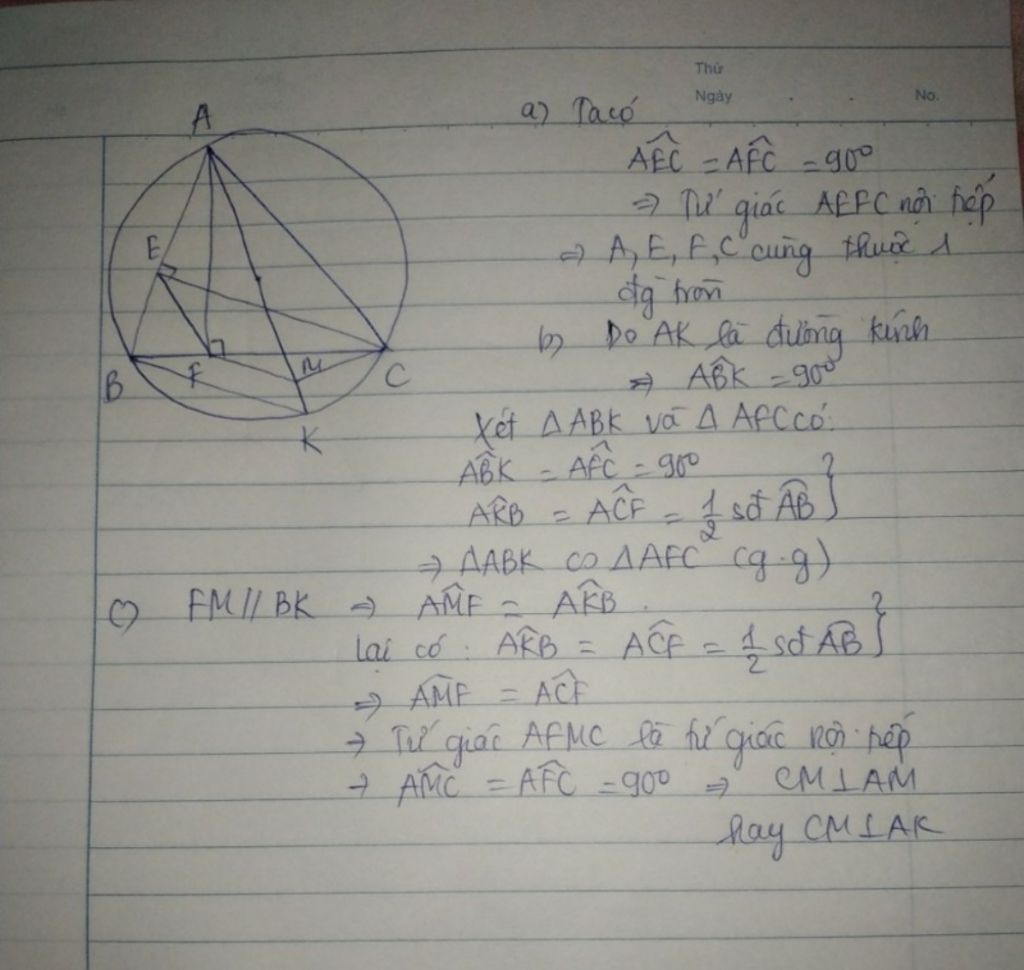 Thứ
Ngày . . No.
A
E
B
F
M
C
K
a) Ta có
AÊC = AF̂C = 90°
=> Tứ giác AEFC nội tiếp
=> A, E, F, C cùng thuộc 1
đg tròn
b) Do AK là đường kính
=> AB̂K = 90°
Xét ΔABK và Δ AFC có:
AB̂K = AF̂C = 90°
AK̂B = AĈF = 1/2 sđ AB }
=> ΔABK ∽ ΔAFC (g.g)
c) FM // BK => AM̂F = AK̂B.
Lại có: AK̂B = AĈF = 1/2 sđ AB }
=> AM̂F = AĈF
→ Tứ giác AFMC là tứ giác nội tiếp
→ AM̂C = AF̂C = 90° => CM⊥AM
hay CM⊥AK